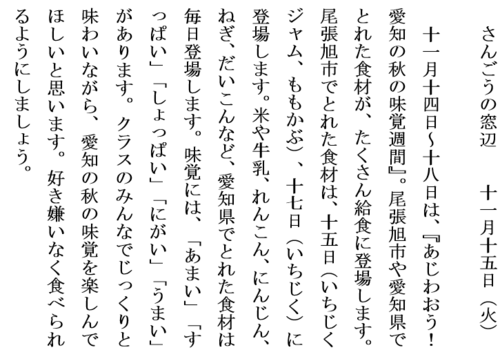 さんごうの窓辺　　十一月十五日（火）
　十一月十四日～十八日は、『あじわおう！
愛知の秋の味覚週間』。尾張旭市や愛知県で
とれた食材が、たくさん給食に登場します。
尾張旭市でとれた食材は、十五日（いちじく
ジャム、ももかぶ）、十七日（いちじく）に
登場します。米や牛乳、れんこん、にんじん、
ねぎ、だいこんなど、愛知県でとれた食材は
毎日登場します。味覚には、「あまい」「す
っぱい」「しょっぱい」「にがい」「うまい」
があります。クラスのみんなでじっくりと
味わいながら、愛知の秋の味覚を楽しんで
ほしいと思います。好き嫌いなく食べられ
るようにしましょう。